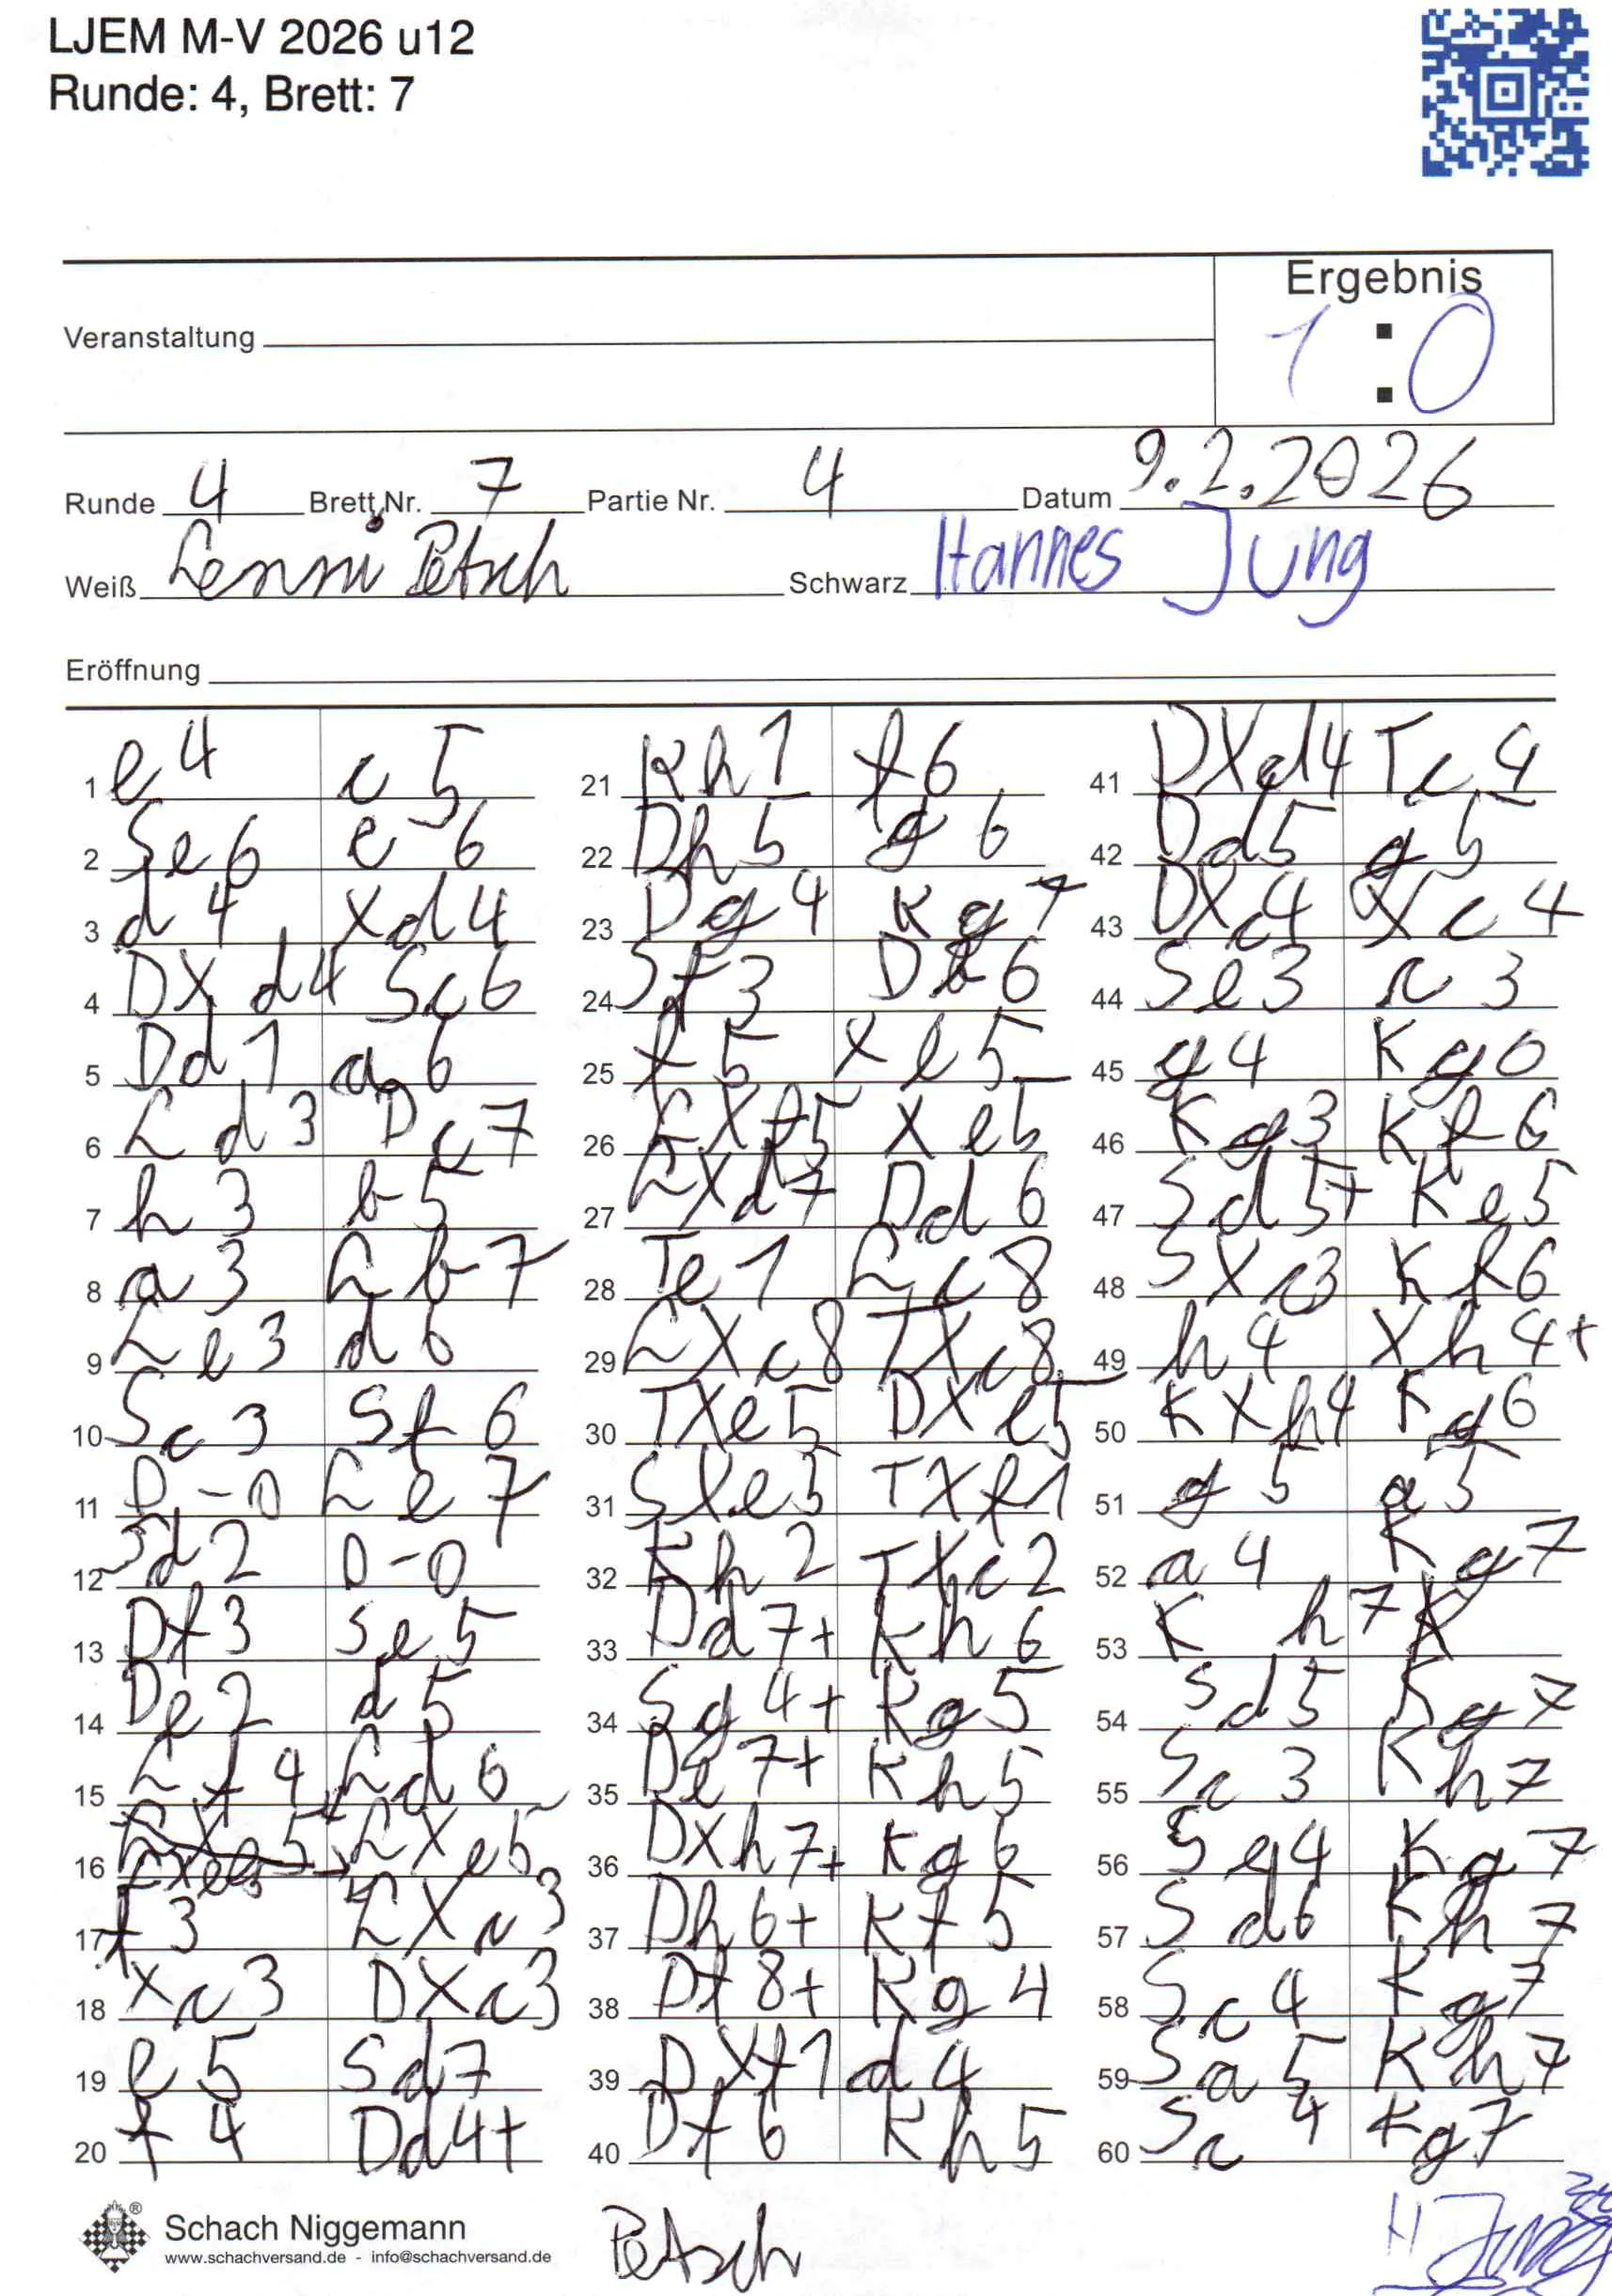 LJEM M-V 2026 u12
Runde: 4, Brett: 7
Ergebnis
Veranstaltung
1 : 0
Runde 4 Brett Nr. 7 Partie Nr. 4 Datum 9.2.2026
Weiß Lenni Petsch Schwarz Hannes Jung
Eröffnung
1 e4 c5
2 Se6 e6
3 d4 Xd4
4 DXd4 Sc6
5 Dd1 a6
6 Ld3 Dc7
7 h3 b5
8 a3 Lb7
9 Le3 d6
10 Sc3 Sf6
11 0-0 Le7
12 Sd2 0-0
13 Df3 Se5
14 De2 d5
15 Lf4 Ld6
16 LXe5 LXe5
17 f3 LXc3
18 Xc3 DXc3
19 e5 Sd7
20 f4 Dd4+
21 Kh1 f6
22 Dh5 g6
23 Dg4 Kg7
24 Sf3 Db6
25 f5 Xe5
26 LXf5 Xe5
27 LXd7 Dd6
28 Te1 Lc8
29 LXc8 TXc8
30 TXe5 DXe5
31 SXe5 TXf1
32 Kh2 TXc2
33 Dd7+ Kh6
34 Sg4+ Kg5
35 De7+ Kh5
36 DXh7+ Kg6
37 Dh6+ Kf5
38 Df8+ Kg4
39 DXf1 d4
40 Df6 Kh5
41 DXd4 Tc4
42 Dd5 g5
43 DXc4 Xc4
44 Se3 c3
45 g4 Kg6
46 Kg3 Kf6
47 Sd5+ Ke5
48 SXc3 Kf6
49 h4 Xh4+
50 KXh4 Kg6
51 g5 a5
52 a4 Kg7
53 K h7
54 Sd5 Kg7
55 Sc3 Kh7
56 Se4 Kg7
57 Sd6 Kh7
58 Sc4 Kg7
59 Sa5 Kh7
60 Sc4 Kg7
Schach Niggemann
www.schachversand.de - info@schachversand.de
Petsch
H Jung